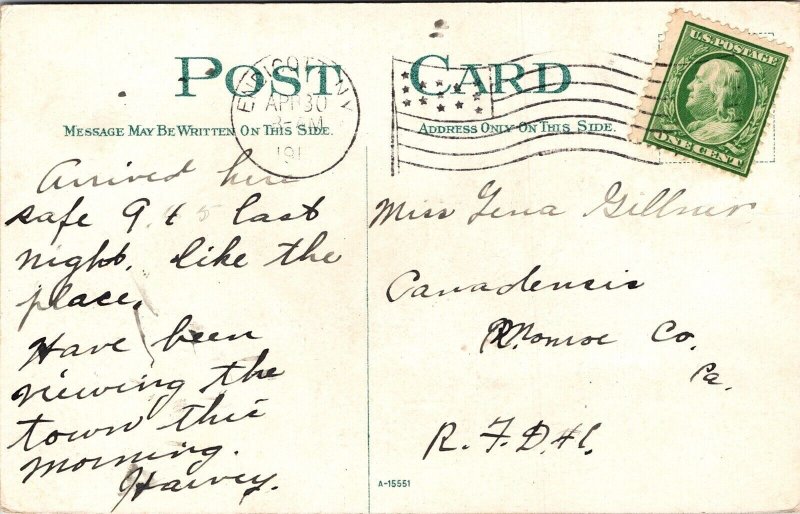 POST CARD
MESSAGE MAY BE WRITTEN ON THIS SIDE.
ADDRESS ONLY ON THIS SIDE.
ENDICOTT, N.Y.
APR 30
8-AM
191
U.S. POSTAGE
ONE CENT
Arrived here
safe 9.45 last
night. like the
place.
Have been
viewing the
town this
morning.
Harvey.
Miss Lena Gillner
Canadensis
Monroe Co.
Pa.
R. F. D. #1.
A-15551